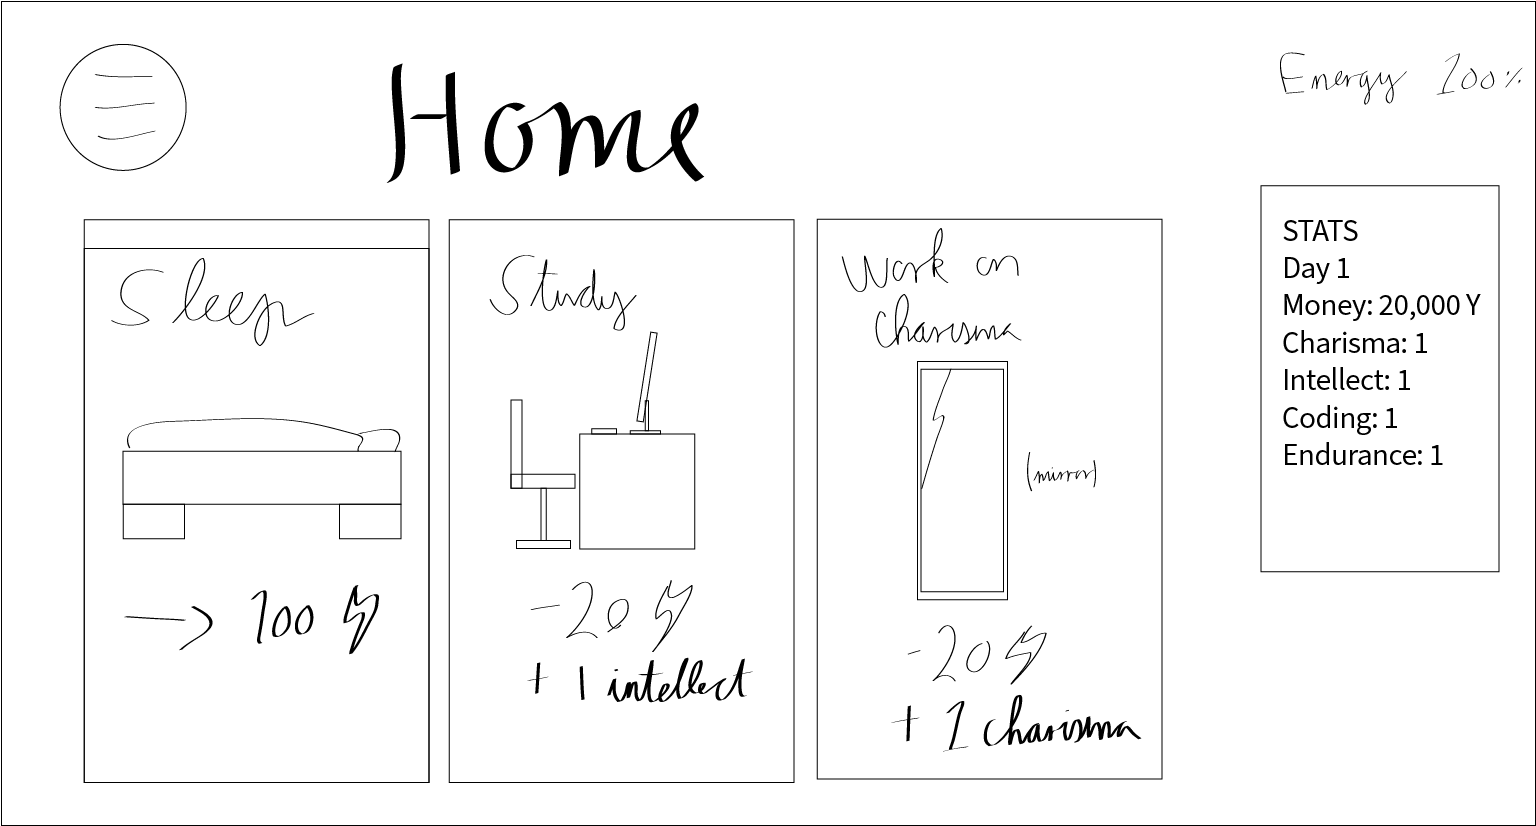 Home
Energy 100%
Sleep
→ 100
Study
-20
+ 1 intellect
Work on
charisma
(mirror)
-20
+ 1 charisma
STATS
Day 1
Money: 20,000 Y
Charisma: 1
Intellect: 1
Coding: 1
Endurance: 1